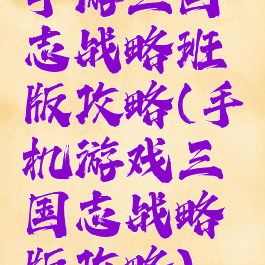 手游三国
志战略班
版攻略(手
机游戏三
国志战略
版攻略)